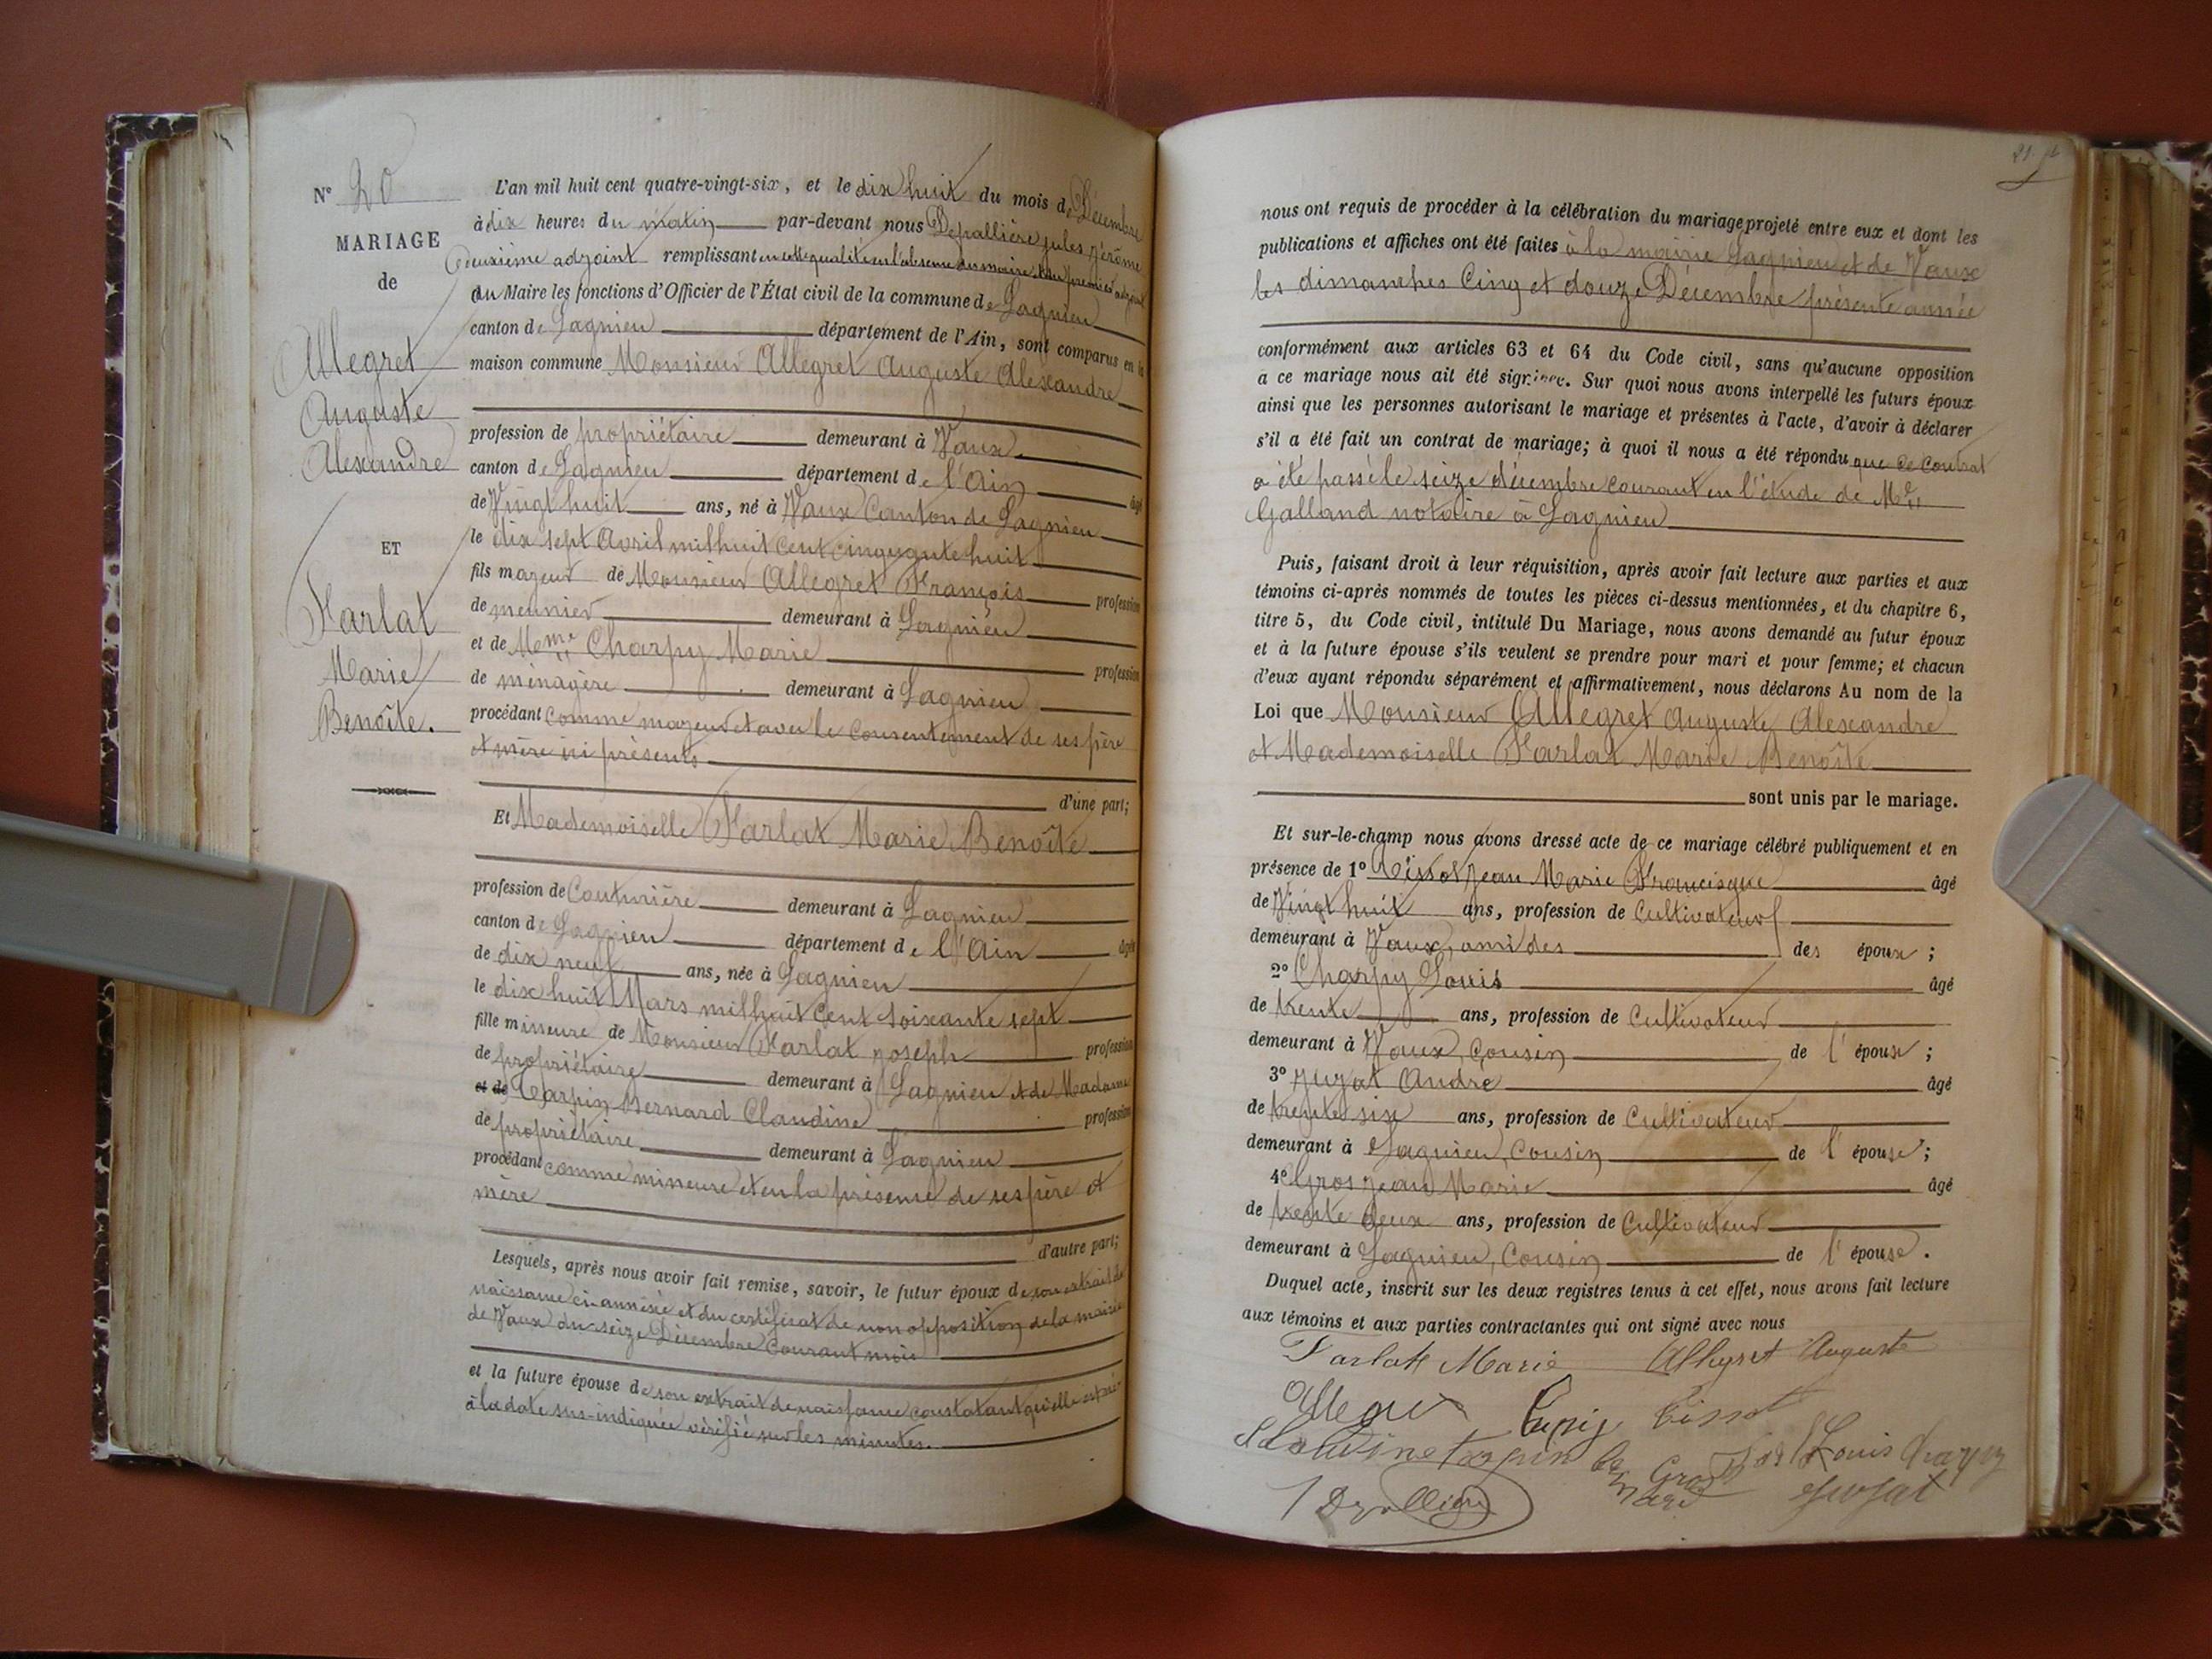 N° 20
MARIAGE
de
Allegret
Auguste
Alexandre
ET
Farlat
Marie
Benoîte.
L'an mil huit cent quatre-vingt-six, et le dix huit du mois de Décembre
à dix heures du matin par-devant nous Depallière jules jérôme
deuxième adjoint remplissant en cette qualité en l'absence du maire et du premier adjoint
du Maire les fonctions d'Officier de l'État civil de la commune de Lagnieu
canton de Lagnieu département de l'Ain, sont comparus en la
maison commune Monsieur Allegret Auguste Alexandre
profession de propriétaire demeurant à Vaux.
canton de Lagnieu département de l'Ain âgé
de Vingt huit ans, né à Vaux Canton de Lagnieu
le dix sept Avril mil huit cent cinquante huit
fils majeur de Monsieur Allegret François profession
de meunier demeurant à Lagnieu
et de Mme Charpy Marie profession
de ménagère demeurant à Lagnieu
procédant comme majeur et avec le consentement de ses père
et mère ici présents
d'une part;
Et Mademoiselle Farlat Marie Benoîte
profession de Couturière demeurant à Lagnieu
canton de Lagnieu département de l'Ain âgée
de dix neuf ans, née à Lagnieu
le dix huit Mars mil huit cent soixante sept
fille mineure de Monsieur Farlat joseph profession
de propriétaire demeurant à Lagnieu et de Madame
et de Tarpin Bernard Claudine profession
de propriétaire demeurant à Lagnieu
procédant comme mineure et en la présence de ses père et
mère
d'autre part;
Lesquels, après nous avoir fait remise, savoir, le futur époux de son extrait de
naissance ci-annexée et du certificat de non opposition de la mairie
de Vaux du seize Décembre Courant mois
et la future épouse de son extrait de naissance constatant qu'elle est née
à la date sus-indiquée vérifié sur les minutes.
21
nous ont requis de procéder à la célébration du mariage projeté entre eux et dont les
publications et affiches ont été faites à la mairie Lagnieu et de Vaux
les dimanches Cinq et douze Décembre présente année
conformément aux articles 63 et 64 du Code civil, sans qu'aucune opposition
à ce mariage nous ait été signifiée. Sur quoi nous avons interpellé les futurs époux
ainsi que les personnes autorisant le mariage et présentes à l'acte, d'avoir à déclarer
s'il a été fait un contrat de mariage; à quoi il nous a été répondu que ce Contrat
a été passé le seize décembre courant en l'étude de Me
Galland notaire à Lagnieu
Puis, faisant droit à leur réquisition, après avoir fait lecture aux parties et aux
témoins ci-après nommés de toutes les pièces ci-dessus mentionnées, et du chapitre 6,
titre 5, du Code civil, intitulé Du Mariage, nous avons demandé au futur époux
et à la future épouse s'ils veulent se prendre pour mari et pour femme; et chacun
d'eux ayant répondu séparément et affirmativement, nous déclarons Au nom de la
Loi que Monsieur Allegret Auguste Alexandre
et Mademoiselle Farlat Marie Benoîte
sont unis par le mariage.
Et sur-le-champ nous avons dressé acte de ce mariage célébré publiquement et en
présence de 1° Tissot Jean Marie Francisque âgé
de Vingt huit ans, profession de Cultivateur
demeurant à Vaux, ami des des époux;
2° Charpy Louis âgé
de trente ans, profession de Cultivateur
demeurant à Vaux, Cousin de l'époux;
3° Juzat André âgé
de trente six ans, profession de Cultivateur
demeurant à Lagnieu, Cousin de l'épouse;
4° Gros Jean Marie âgé
de trente deux ans, profession de Cultivateur
demeurant à Lagnieu, Cousin de l'épouse.
Duquel acte, inscrit sur les deux registres tenus à cet effet, nous avons fait lecture
aux témoins et aux parties contractantes qui ont signé avec nous
Farlat Marie Allegret Auguste
Tissot
Gros Louis